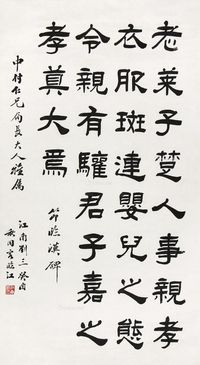 老萊子楚人事親孝
衣服斑連嬰兒之態
令親有驩君子嘉之
孝莫大焉
節臨漢碑
中村仁兄局長大人雅属
江南劉三癸酉
秋同客臨江